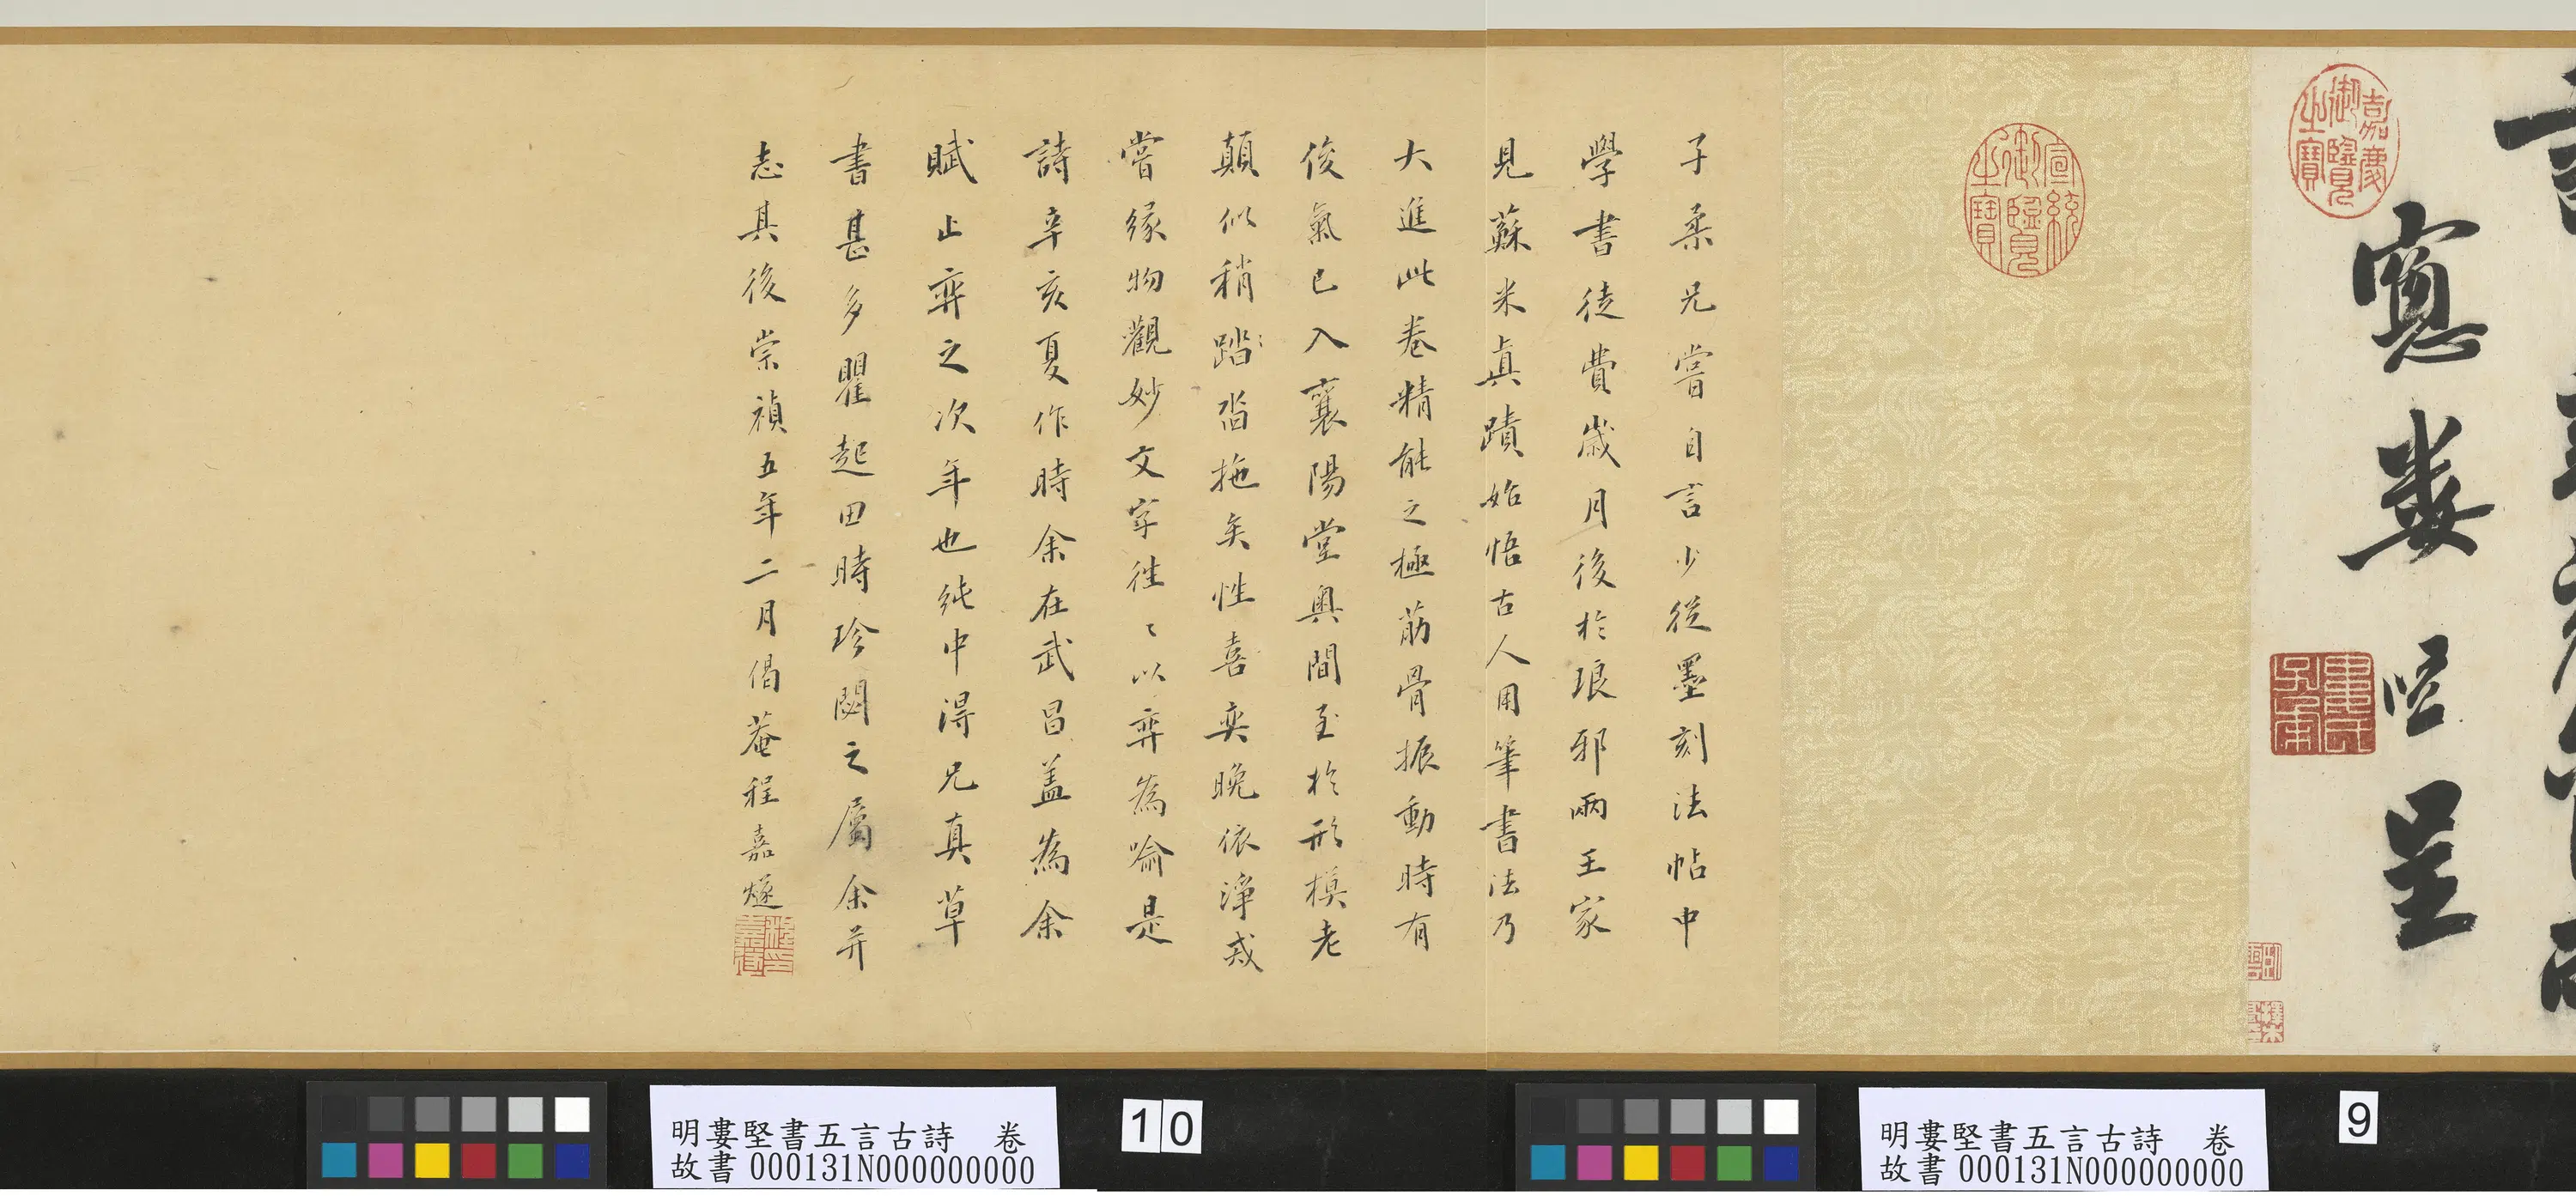 寬婁堅呈
嘉慶御覽之寶
婁氏子柔
宣統御覽之寶
子柔兄嘗自言少從墨刻法帖中
學書徒費歲月後於琅邪兩王家
見蘇米真蹟始悟古人用筆書法乃
大進此卷精能之極筋骨振動時有
俊氣已入襄陽堂奧間至於形模老
顛似稍踏沓拖矣性喜奕晚依淨戒
嘗緣物觀妙文字往〻以弈為喻是
詩辛亥夏作時余在武昌蓋為余
賦止弈之次年也純中得兄真草
書甚多瞿起田時珍閟之屬余并
志其後崇禎五年二月偈菴程嘉燧
明婁堅書五言古詩 卷
故書 000131N000000000
10
明婁堅書五言古詩 卷
故書 000131N000000000
9